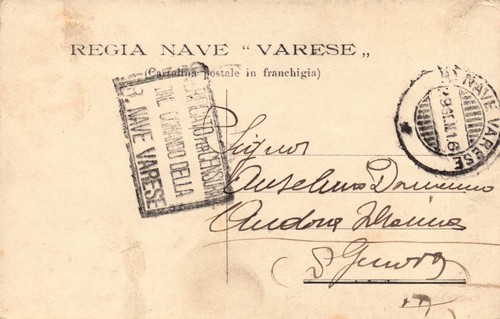 REGIA NAVE “VARESE„
(Cartolina postale in franchigia)
VERIFICATO PER CENSURA
DAL COMANDO DELLA
R. NAVE VARESE
R. NAVE VARESE
Signor
Anselmo Domenico
Andora Marina